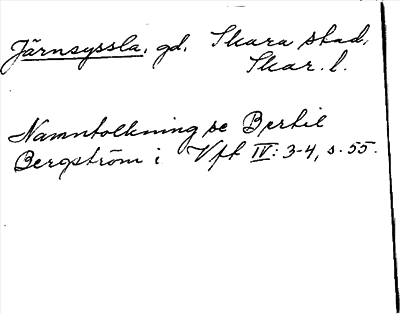 Järnsyssla, gd, Skara stad,
Skar. l.
Namntolkning se Bertil
Bergström i Vft IV: 3-4, s. 55.